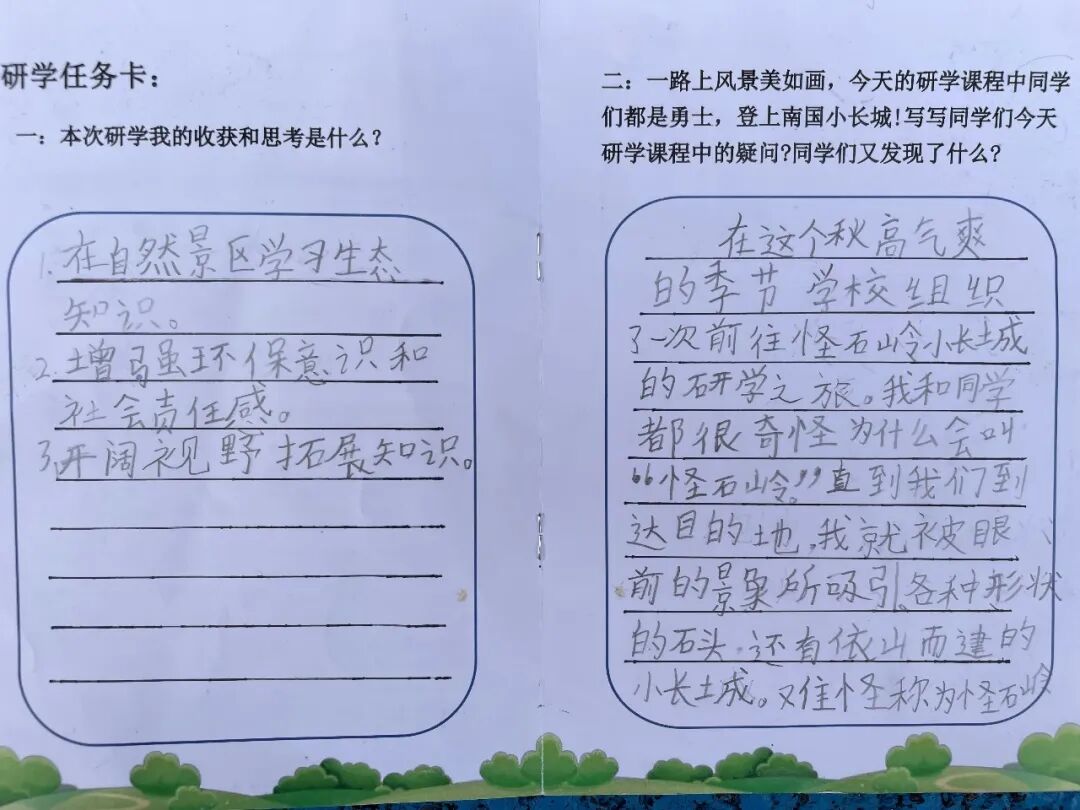 研学任务卡：
一：本次研学我的收获和思考是什么？
1.在自然景区学习生态
知识。
2.增强环保意识和
社会责任感。
3.开阔视野拓展知识。
二：一路上风景美如画，今天的研学课程中同学
们都是勇士，登上南国小长城！写写同学们今天
研学课程中的疑问？同学们又发现了什么？
在这个秋高气爽
的季节学校组织
了一次前往怪石岭小长城
的研学之旅。我和同学
都很奇怪为什么会叫
“怪石岭”。直到我们到
达目的地，我就被眼
前的景象所吸引，各种形状
的石头，还有依山而建的
小长城。又住怪称为怪石岭